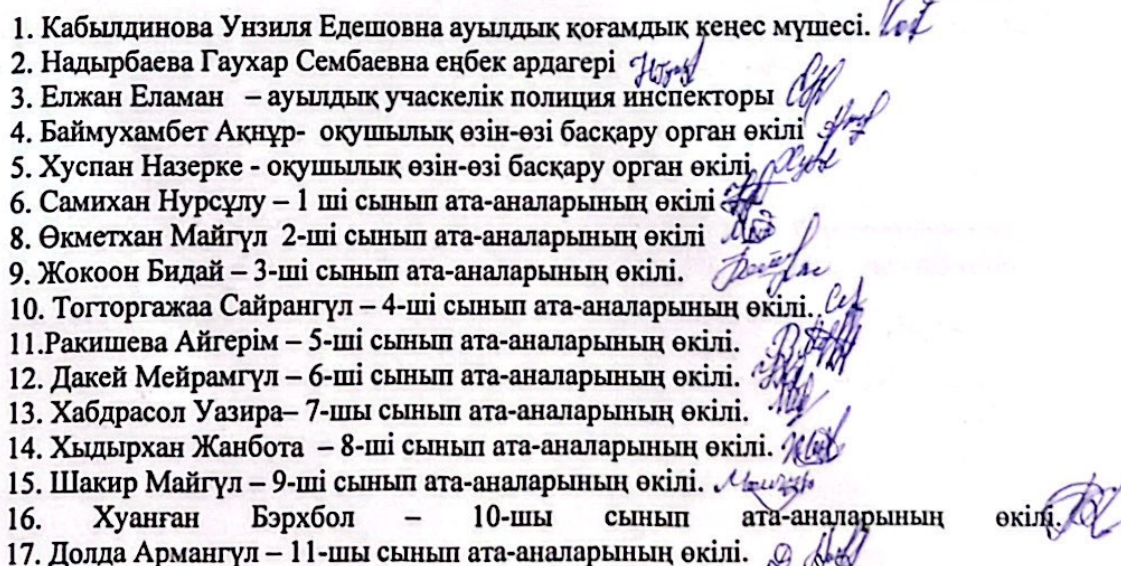 1. Кабылдинова Унзиля Едешовна ауылдық қоғамдық кеңес мүшесі.
2. Надырбаева Гаухар Сембаевна еңбек ардагері
3. Елжан Еламан – ауылдық учаскелік полиция инспекторы
4. Баймухамбет Ақнұр- оқушылық өзін-өзі басқару орган өкілі
5. Хуспан Назерке - оқушылық өзін-өзі басқару орган өкілі
6. Самихан Нурсұлу – 1 ші сынып ата-аналарының өкілі
8. Өкметхан Майгүл 2-ші сынып ата-аналарының өкілі
9. Жокоон Бидай – 3-ші сынып ата-аналарының өкілі.
10. Тогторгажаа Сайрангүл – 4-ші сынып ата-аналарының өкілі.
11.Ракишева Айгерім – 5-ші сынып ата-аналарының өкілі.
12. Дакей Мейрамгүл – 6-ші сынып ата-аналарының өкілі.
13. Хабдрасол Уазира– 7-шы сынып ата-аналарының өкілі.
14. Хыдырхан Жанбота – 8-ші сынып ата-аналарының өкілі.
15. Шакир Майгүл – 9-ші сынып ата-аналарының өкілі.
16. Хуанған Бэрхбол – 10-шы сынып ата-аналарының өкілі.
17. Долда Армангүл – 11-шы сынып ата-аналарының өкілі.